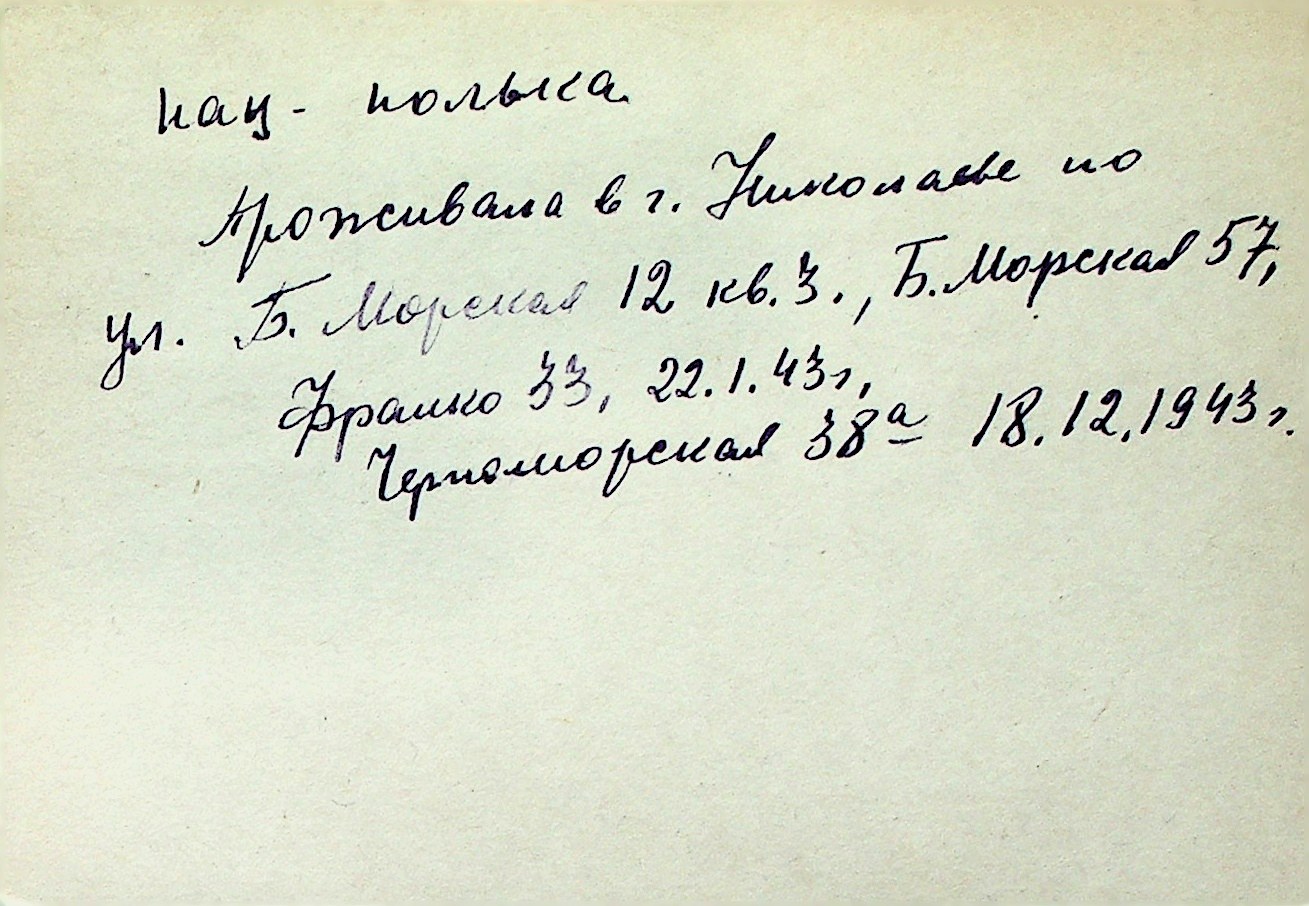 нац - полька.
Проживала в г. Николаеве по
ул. Б. Морская 12 кв. 3., Б. Морская 57,
Франко 33, 22.1.43г,
Черноморская 38а 18.12.1943г.